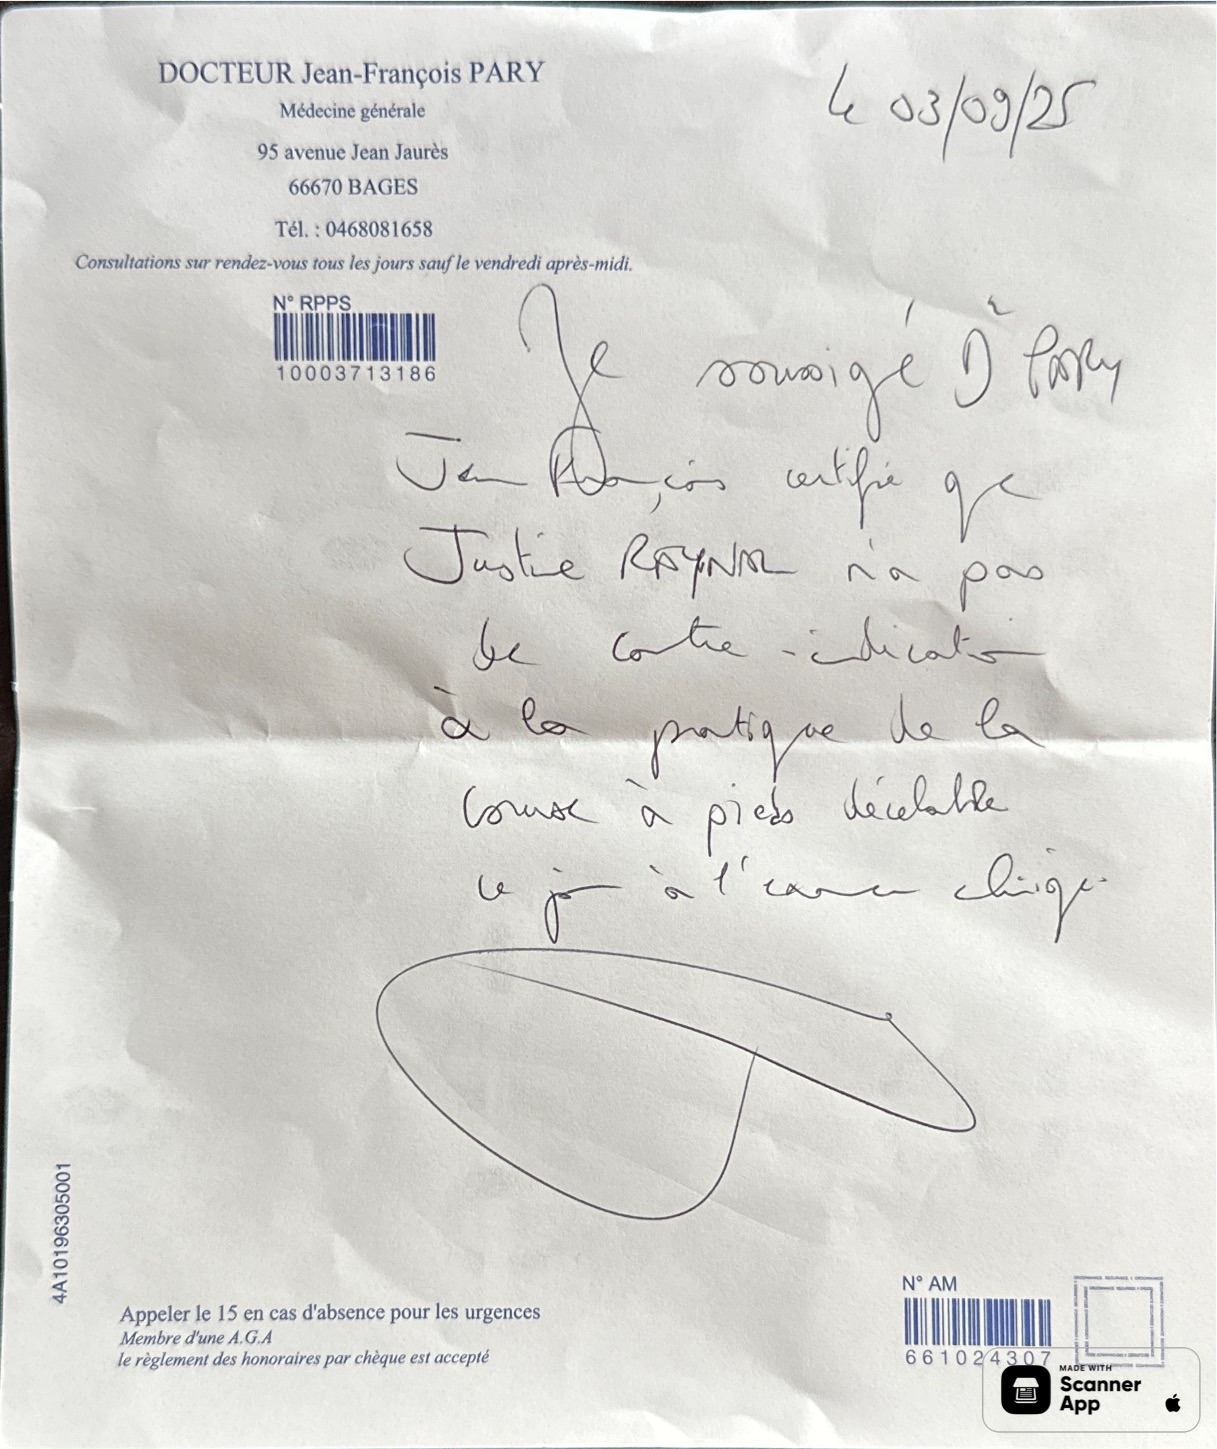 DOCTEUR Jean-François PARY
Médecine générale
95 avenue Jean Jaurès
66670 BAGES
Tél. : 0468081658
Consultations sur rendez-vous tous les jours sauf le vendredi après-midi.
le 03/09/25
N° RPPS
10003713186
Je soussigé Dr PARY
Jean François certifie que
Justine RAYNAL n'a pas
de contre-indication
à la pratique de la
course à pieds décelable
ce jour à l'examen clinique
4A10196305001
Appeler le 15 en cas d'absence pour les urgences
Membre d'une A.G.A
le règlement des honoraires par chèque est accepté
N° AM
661024307
MADE WITH
Scanner
App